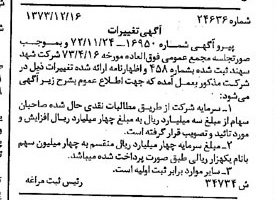 شماره ۲۴۶۳۶ ۱۳۷۳/۱۲/۱۶
آگهی تغییرات
پیرو آگهی شماره ۱۶۹۵۰ – ۷۲/۱۱/۲۴ و بموجب
صورتجلسه مجمع عمومی فوق‌العاده مورخه ۷۳/۴/۱۶ شرکت شهد
سهند ثبت شده بشماره ۴۵۸ و اظهارنامه ارائه شده تغییرات ذیل در
شرکت مذکور بعمل آمده که جهت اطلاع عموم بشرح زیر آگهی
می‌شود:
۱ – سرمایه شرکت از طریق مطالبات نقدی حال شده صاحبان
سهام از مبلغ سه میلیارد ریال به مبلغ چهار میلیارد ریال افزایش و
مورد تائید و تصویب قرار گرفته است.
۲ – مبلغ سرمایه چهار میلیارد ریال منقسم به چهار میلیون سهم
بانام یکهزار ریالی طبق صورت پرداخت شده میباشد.
۳ – سایر موارد برابر ثبت اولیه است.
ش ۳۴۷۳۴ رئیس ثبت مراغه